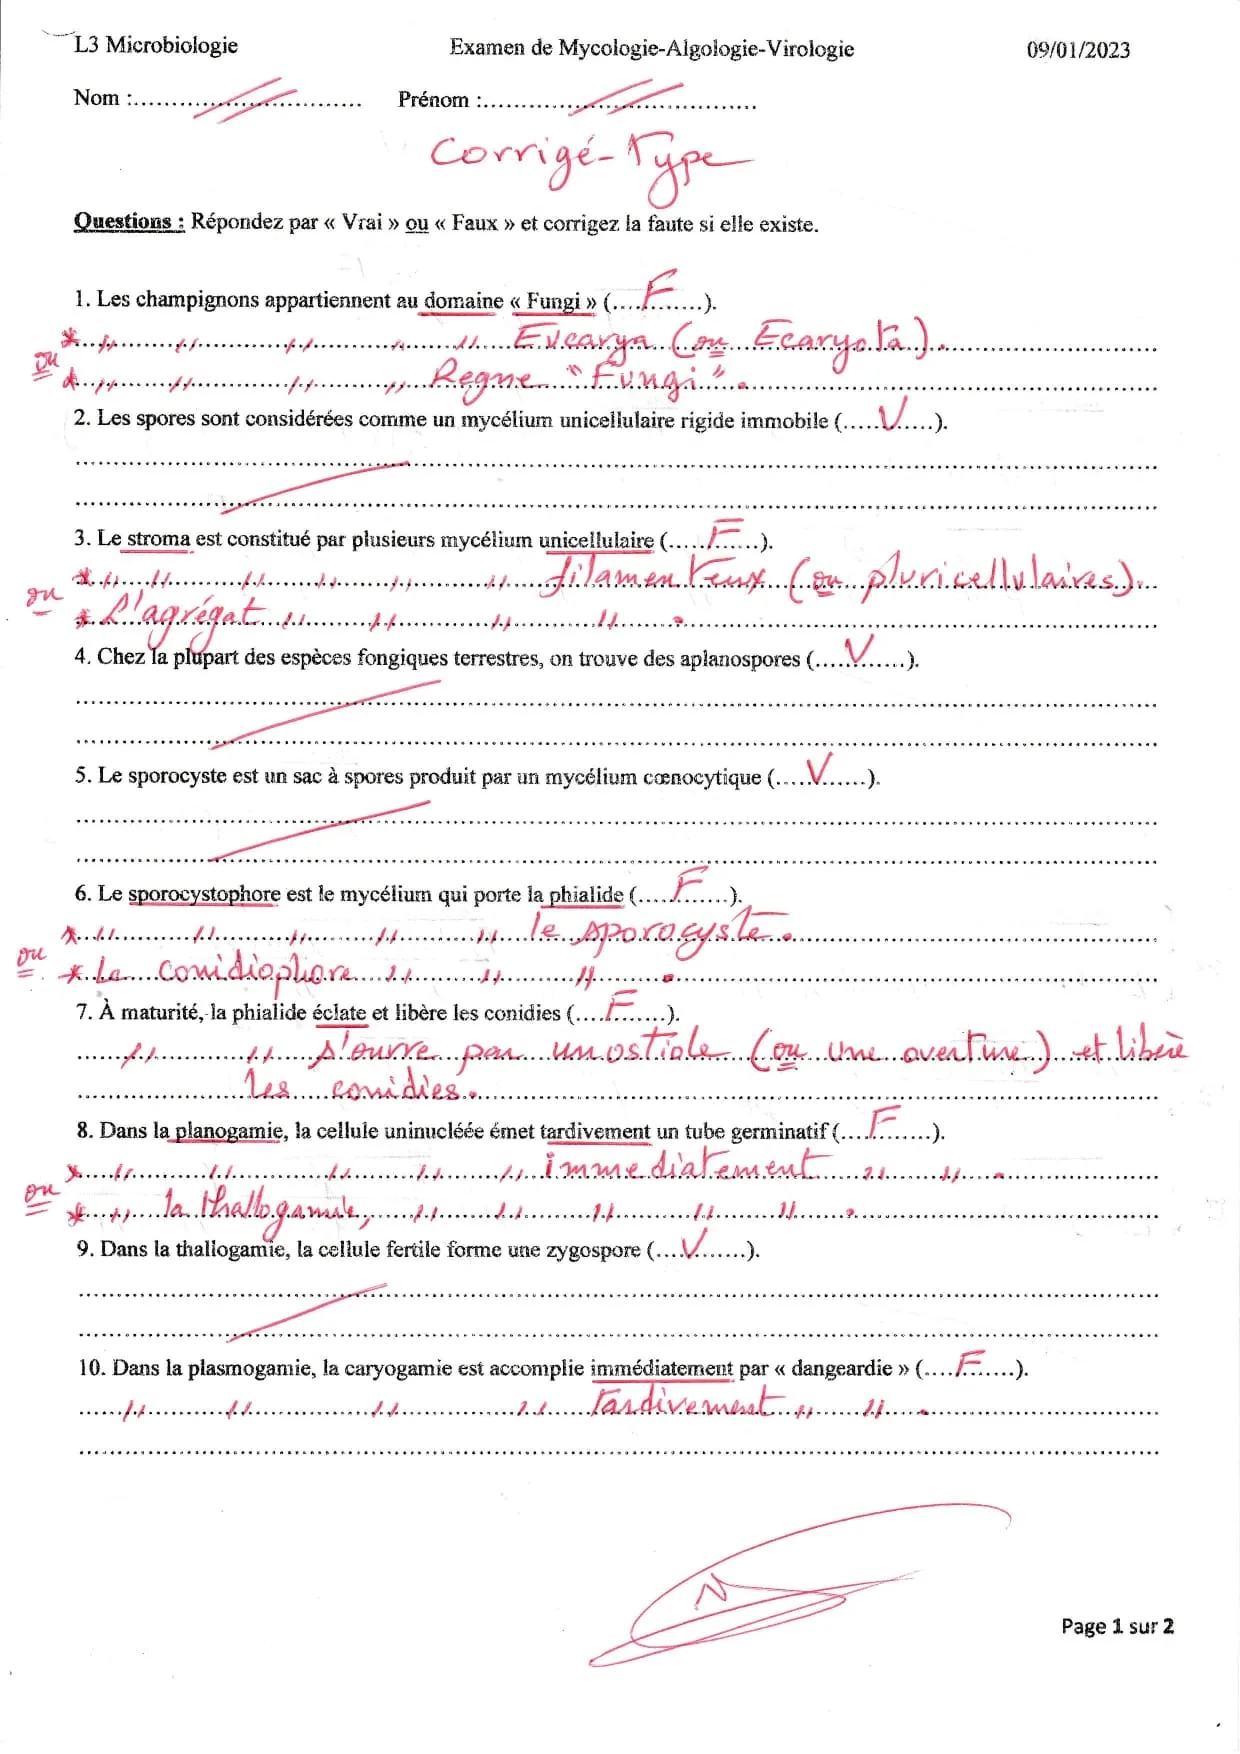 L3 Microbiologie Examen de Mycologie-Algologie-Virologie 09/01/2023
Nom :............................. Prénom :....................................
Corrigé-Type
Questions : Répondez par « Vrai » ou « Faux » et corrigez la faute si elle existe.
1. Les champignons appartiennent au domaine « Fungi » (....F.......).
* " " " " " Eucarya (ou Ecaryota).
ou * " " " " Regne "Fungi".
2. Les spores sont considérées comme un mycélium unicellulaire rigide immobile (.....V.....).
3. Le stroma est constitué par plusieurs mycélium unicellulaire (.....F......).
* " " " " " " filamenteux (ou pluricellulaires).
ou * L'agrégat " " " " .
4. Chez la plupart des espèces fongiques terrestres, on trouve des aplanospores (....V.......).
5. Le sporocyste est un sac à spores produit par un mycélium cœnocytique (....V......).
6. Le sporocystophore est le mycélium qui porte la phialide (....F.......).
* " " " " " le sporocyste.
ou * Le conidiophore " " " .
7. À maturité, la phialide éclate et libère les conidies (....F.......).
" " s'ouvre par un ostiole (ou une overture) et libère
les conidies.
8. Dans la planogamie, la cellule uninucléée émet tardivement un tube germinatif (....F........).
* " " " " " immediatement " " .
ou * " la thallogamie, " " " " " .
9. Dans la thallogamie, la cellule fertile forme une zygospore (....V.......).
10. Dans la plasmogamie, la caryogamie est accomplie immédiatement par « dangeardie » (....F.......).
" " " " Tardivement " " .
N
Page 1 sur 2